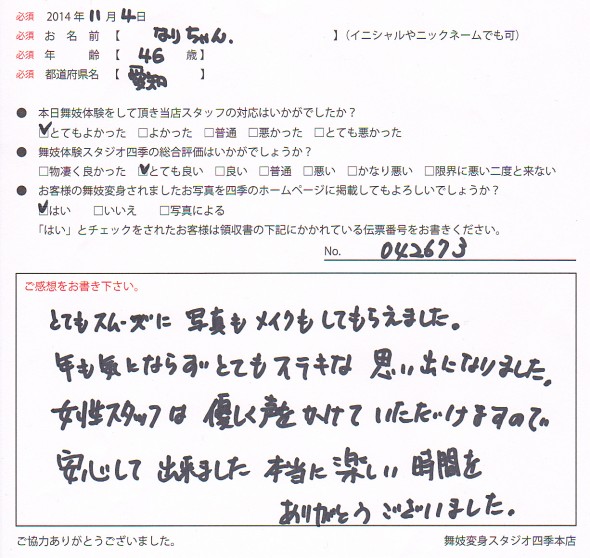 必須 2014年 11月 4日
必須 お名前【 なりちゃん. 】(イニシャルやニックネームでも可)
必須 年齢【 46 歳】
必須 都道府県名【 愛知 】
● 本日舞妓体験をして頂き当店スタッフの対応はいかがでしたか？
☑とてもよかった □よかった □普通 □悪かった □とても悪かった
● 舞妓体験スタジオ四季の総合評価はいかがでしょうか？
□物凄く良かった ☑とても良い □良い □普通 □悪い □かなり悪い □限界に悪い二度と来ない
● お客様の舞妓変身されましたお写真を四季のホームページに掲載してもよろしいでしょうか？
☑はい □いいえ □写真による
「はい」とチェックをされたお客様は領収書の下記にかかれている伝票番号をお書きください。
No. 042673
ご感想をお書き下さい。
とてもスムーズに 写真も メイクも してもらえました。
年も気にならず とても ステキな 思い出になりました。
女性スタッフは 優しく声を かけて いただけますので
安心して 出来ました 本当に 楽しい 時間を
ありがとう ございました。
ご協力ありがとうございました。 舞妓変身スタジオ四季本店